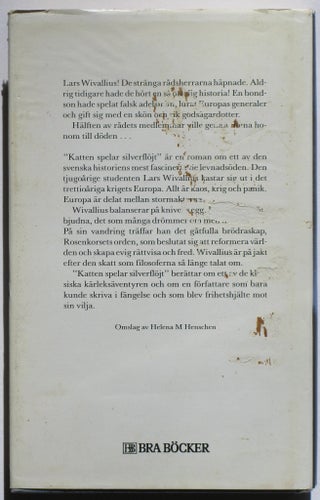 Lars Wivallius! De stränga rådsherrarna häpnade. Ald-
rig tidigare hade de hört en så historia! En bondson
son hade spelat falsk lurat Europas generaler
och gift sig med en skön rik godsägardotter.
Hälften av rådets ville honom
honom till döden . . .
"Katten spelar silverflöjt" är en roman om ett av den
svenska historiens mest levnadsöden. Den
tjugoårige studenten Lars Wivallius kastar sig ut i det
trettioåriga krigets Europa. Allt är kaos, krig och panik.
Europa är delat mellan
Wivallius balanserar på
bjudna, det som många drömmer
På sin vandring träffar han det gåtfulla brödraskap,
Rosenkorsets orden, som beslutat sig att reformera värl-
den och skapa evig rättvisa och fred. Wivallius är på jakt
efter den skatt som filosoferna så länge talat om.
"Katten spelar silverflöjt" berättar om ett de
kärleksäventyren och om en författare som bara
kunde skriva i fängelse och som blev frihetshjälte mot
sin vilja.
Omslag av Helena M Henschen
BRA BÖCKER